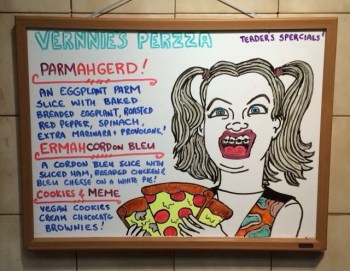 VERNNIE'S PERZZA
TERDER'S SPERCIALS!
PARMAHGERD!
AN EGGPLANT PARM
SLICE WITH BAKED
BREADED EGGPLANT, ROASTED
RED PEPPER, SPINACH,
EXTRA MARINARA & PROVOLONE!
ERMAHCORDON BLEU
A CORDON BLEU SLICE WITH
SLICED HAM, BREADED CHICKEN &
BLEU CHEESE ON A WHITE PIE!
COOKIES & MEME
VEGAN COOKIES
CREAM CHOCOLATE
BROWNIES!